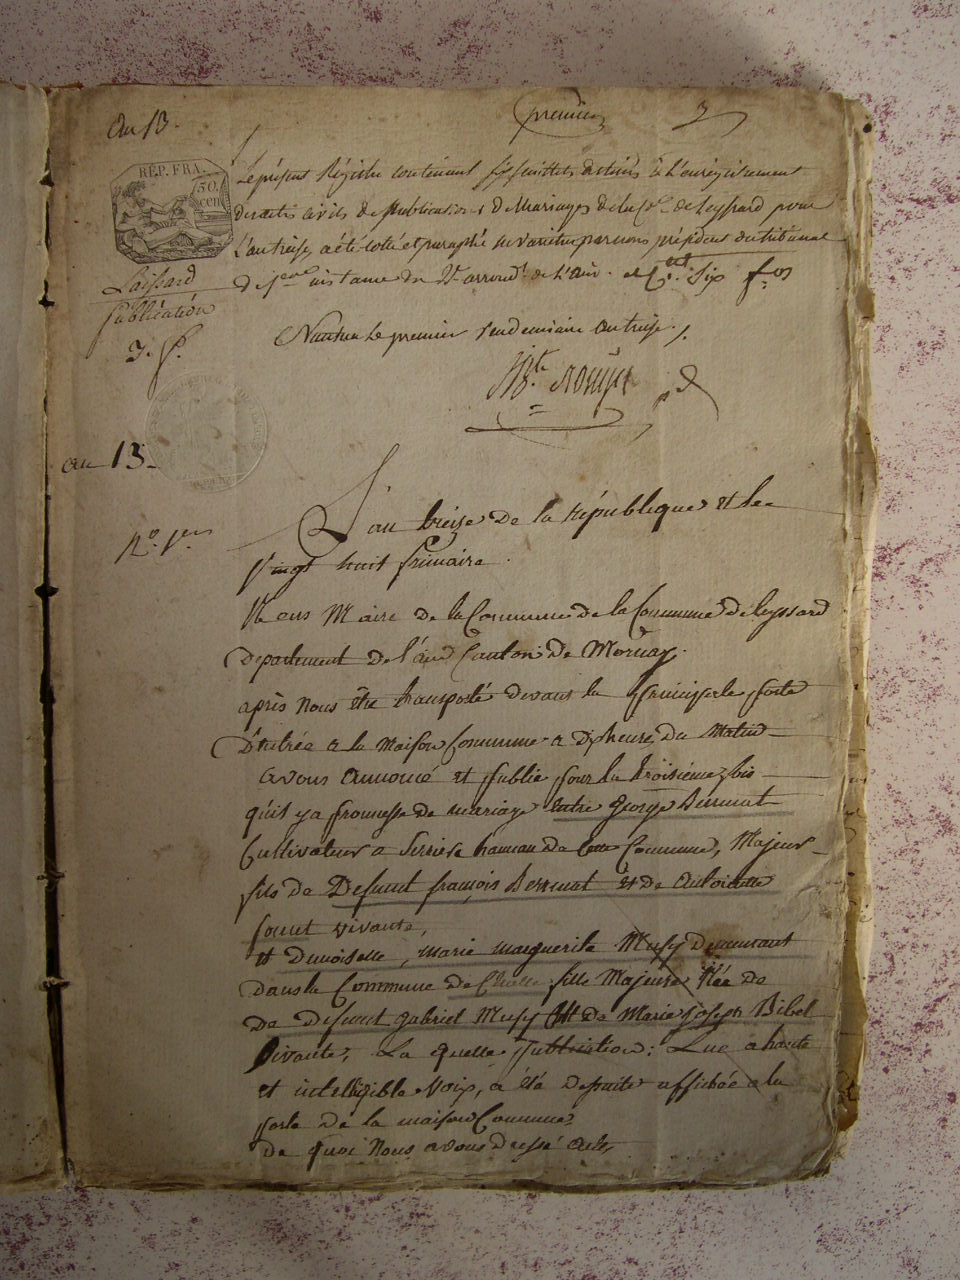 an 13.
premier
RÉP. FRA.
50.
cen
Le présent Régistre contenant six feuillets destinés à l'enrégistrement
des actes civils de publications de Mariages de la Cne. de Leyssard pour
L'an treize, a été cotté et paraphé par nous président du tribunal
de 1ere. instance du arrondt. de l'Ain. Six
Laissard
publication
Nantua Le premier vendemiaire an treize.
an 13.
No. 1er
L'an treize de la république et le
vingt huit frimaire.
Nous Maire de la Commune de la Commune de leyssard
departement de l'ain Canton de Mornay.
après nous être transporté devant la principale porte
D'entrée a la maison Commune a dix heures du Matin
avons annoncé et publié pour la troisieme fois
qu'il y a promesse de mariage entre george
Cultivateur a Serriere hameau de Cette Commune, Majeur
fils de Defunt françois et de antoinette
vivante,
et demoiselle, marie marguerite Mussy demeurant
dans la Commune de fille Majeure Née de
de defunt gabriel Mussy et de Marie joseph
vivante, La quelle publication; Lue a haute
et intelligible voix, a été desuite affichée a la
porte de la maison Commune,
de quoi nous avons dressé acte,